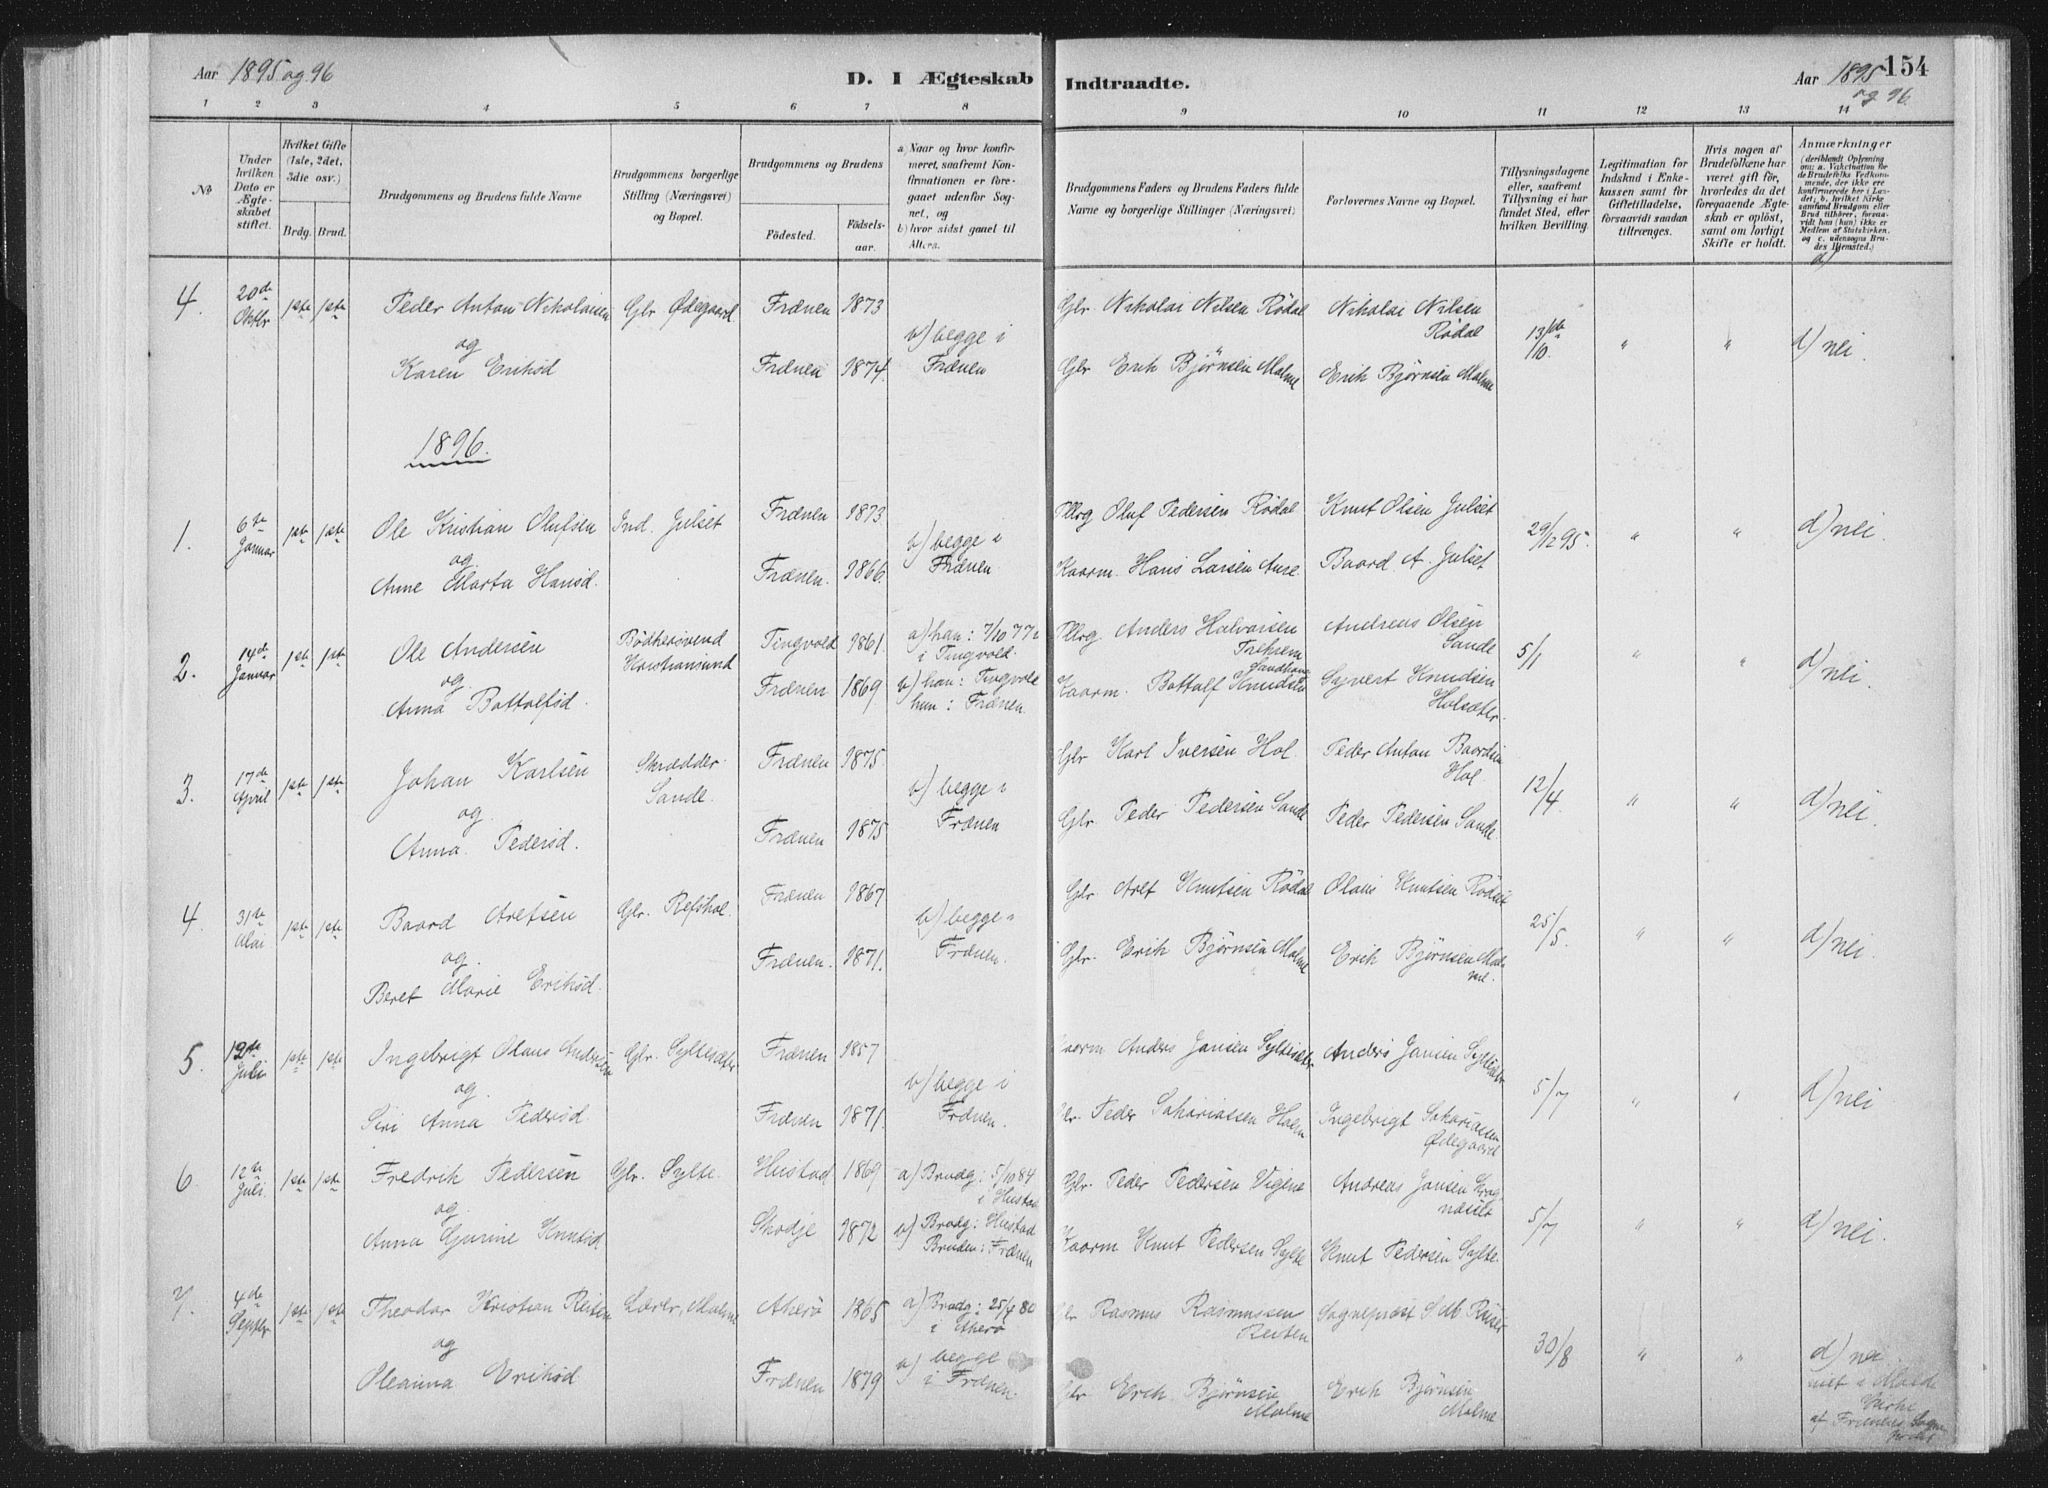 Aar 1895 og 96
D. I Ægteskab
Indtraadte.
Aar 1895 og 96.
154
1 2 3 4 5 6 7 8 9 10 11 12 13 14
No
Under hvilken Dato er Ægteskabet stiftet.
Hvilket Gifte (1ste, 2det, 3die osv.)
Brdg. Brud.
Brudgommens og Brudens fulde Navne
Brudgommens borgerlige Stilling (Næringsvei) og Bopæl.
Brudgommens og Brudens
Fødested.
Fødselsaar.
a) Naar og hvor konfirmeret, saafremt Konfirmationen er foregaaet udenfor Sognet, og
b) hvor sidst gaaet til Alters.
Brudgommens Faders og Brudens Faders fulde Navne og borgerlige Stillinger (Næringsvei)
Forlovernes Navne og Bopæl.
Tillysningsdagene eller, saafremt Tillysning ei har fundet Sted, efter hvilken Bevilling.
Legitimation for Indskud i Enkekassen samt for Giftetilladelse, forsaavidt saadan tiltrænges.
Hvis nogen af Brudefolkene har været gift før, hvorledes da det foregaaende Ægteskab er opløst, samt om lovligt Skifte er holdt.
Anmærkninger (deriblandt Oplysning om: a. Vakcination for de Brudefolks Vedkommende, der ikke ere konfirmerede her i Landet; b. hvilket Kirkesamfund Brudgom eller Brud tilhører, forsaavidt han (hun) ikke er Medlem af Statskirken. og c. udensogns Brudes Hjemsted.)
d)
4. 20de Oktbr 1ste 1ste Peder Anton Nikolaisen Gbr Ødegaard Frænen 1873
og
Karen Eriksd Frænen 1874.
b) begge i Frænen
Gbr Nikolai Nilsen Rødal Nikolai Nilsen Rødal
Gbr Erik Bjørnsen Malme Erik Bjørnsen Malme
13de/10. " " d) nei.
1896.
1. 6te Januar 1ste 1ste Ole Kristian Olufsen Ind. Julset Frænen 1873
og
Anne Marta Hansd. Frænen. 1866.
b) begge i Frænen
Oluf Pedersen Rødal Knut Olsen Julset
Kaarm. Hans Larsen Aure. Baard A. Julset
29/12 95. " " d) nei.
2. 14de Januar 1ste 1ste Ole Andersen Bødkersvend Kristiansund Tingvold 1861.
og
Anna Bottolfsd. Frænen 1869.
a) han: 7/10 77 i Tingvold.
b) han: Tingvold
hun: Frænen.
Anders Halvorsen Andreas Olsen Sande
Kaarm. Bottolf Knudsen Syvert Knudsen Holsæter.
5/1 " " d) nei.
3. 17de April 1ste 1ste Johan Karlsen Skrædder Sande. Frænen 1875.
og.
Anna Pedersd. Frænen 1875
b) begge i Frænen
Gbr Karl Iversen Hol Peder Anton Baardsen Hol.
Gbr. Peder Pedersen Sande Peder Pedersen Sande.
12/4. " " d) nei.
4. 31te Mai 1ste 1ste Baard Arefsen Gbr. Refshol. Frænen 1867
og.
Beret Marie Eriksd. Frænen. 1871.
b) begge i Frænen.
Gbr Aref Knutsen Rødal Olaus Knutsen Rødset
Gbr. Erik Bjørnsen Malme Erik Bjørnsen Malme.
25/5. " " d) nei.
5. 12te Juli 1ste 1ste Ingebrigt Olaus Andersen Gbr. Syltesæter Frænen 1857
og.
Siri Anna Pedersd Frænen 1871.
b) begge i Frænen.
Kaarm Anders Jansen Syltesæter Anders Jansen Syltesæter
Gbr. Peder Sakariassen Holm Ingebrigt Sakariassen Ødegaard
5/7 " " d) nei
6. 12te Juli. 1ste 1ste Fredrik Pedersen Gbr. Sylte. Hustad 1869
og.
Anna Gjurine Knutsd Skodje 1872
a) Brudg: 5/10 84 i Hustad
b) Brudg: Hustad
Bruden: Frænen
Gbr. Peder Pedersen Vigene Andreas Jansen
Kaarm Knut Pedersen Sylte Knut Pedersen Sylte.
5/7 " " d) nei.
7. 4de Septbr 1ste 1ste Theodor Kristian Reiten Lærer, Malme Akerø 1865
og
Oleanna Eriksd Frænen 1879
a) Brudg: 25/4 80 i Akerø
b) begge i Frænen.
Gbr Rasmus Rasmussen Reiten Sognepræst
Gbr Erik Bjørnsen Malme Erik Bjørnsen Malme
30/8 " " d) nei.
viet i Molde Kirke
af Frænens Sogneprest